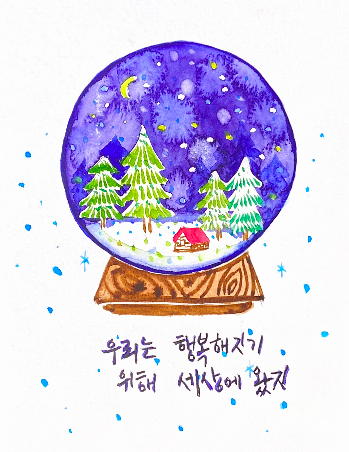 우리는 행복해지기
위해 세상에 왔지